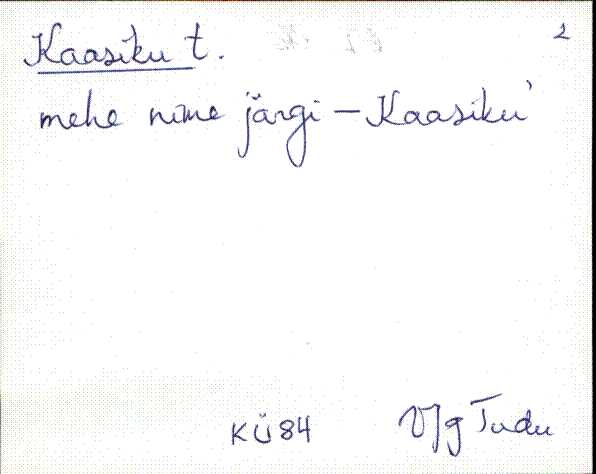 Kaasiku t. 2
mehe nime järgi – Kaasiku'
KÜ84 VJg Tudu